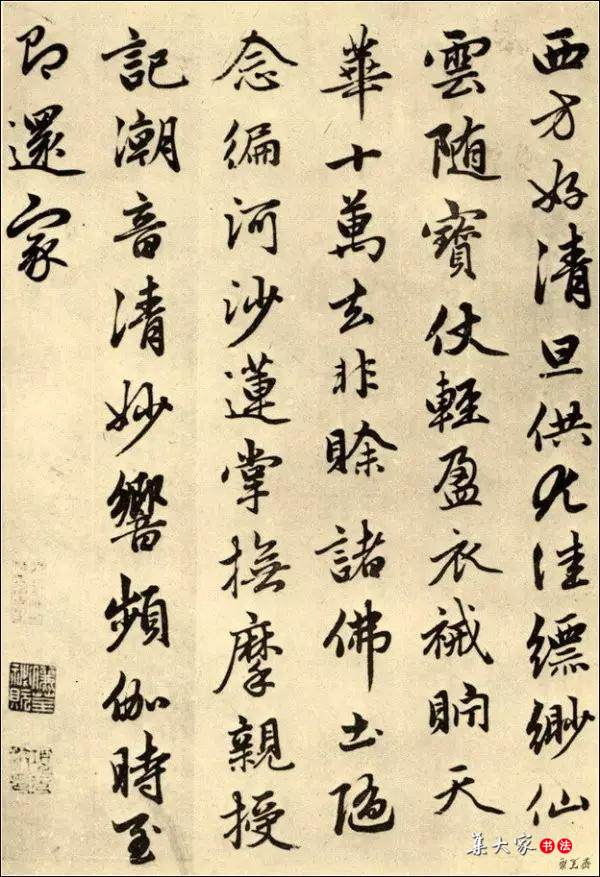 西方好清旦供尤佳縹緲仙
雲随寶仗輕盈衣祴貯天
華十萬去非賒諸佛土随
念徧河沙蓮掌撫摩親授
記潮音清妙響頻伽時至
即還家
集大家书法